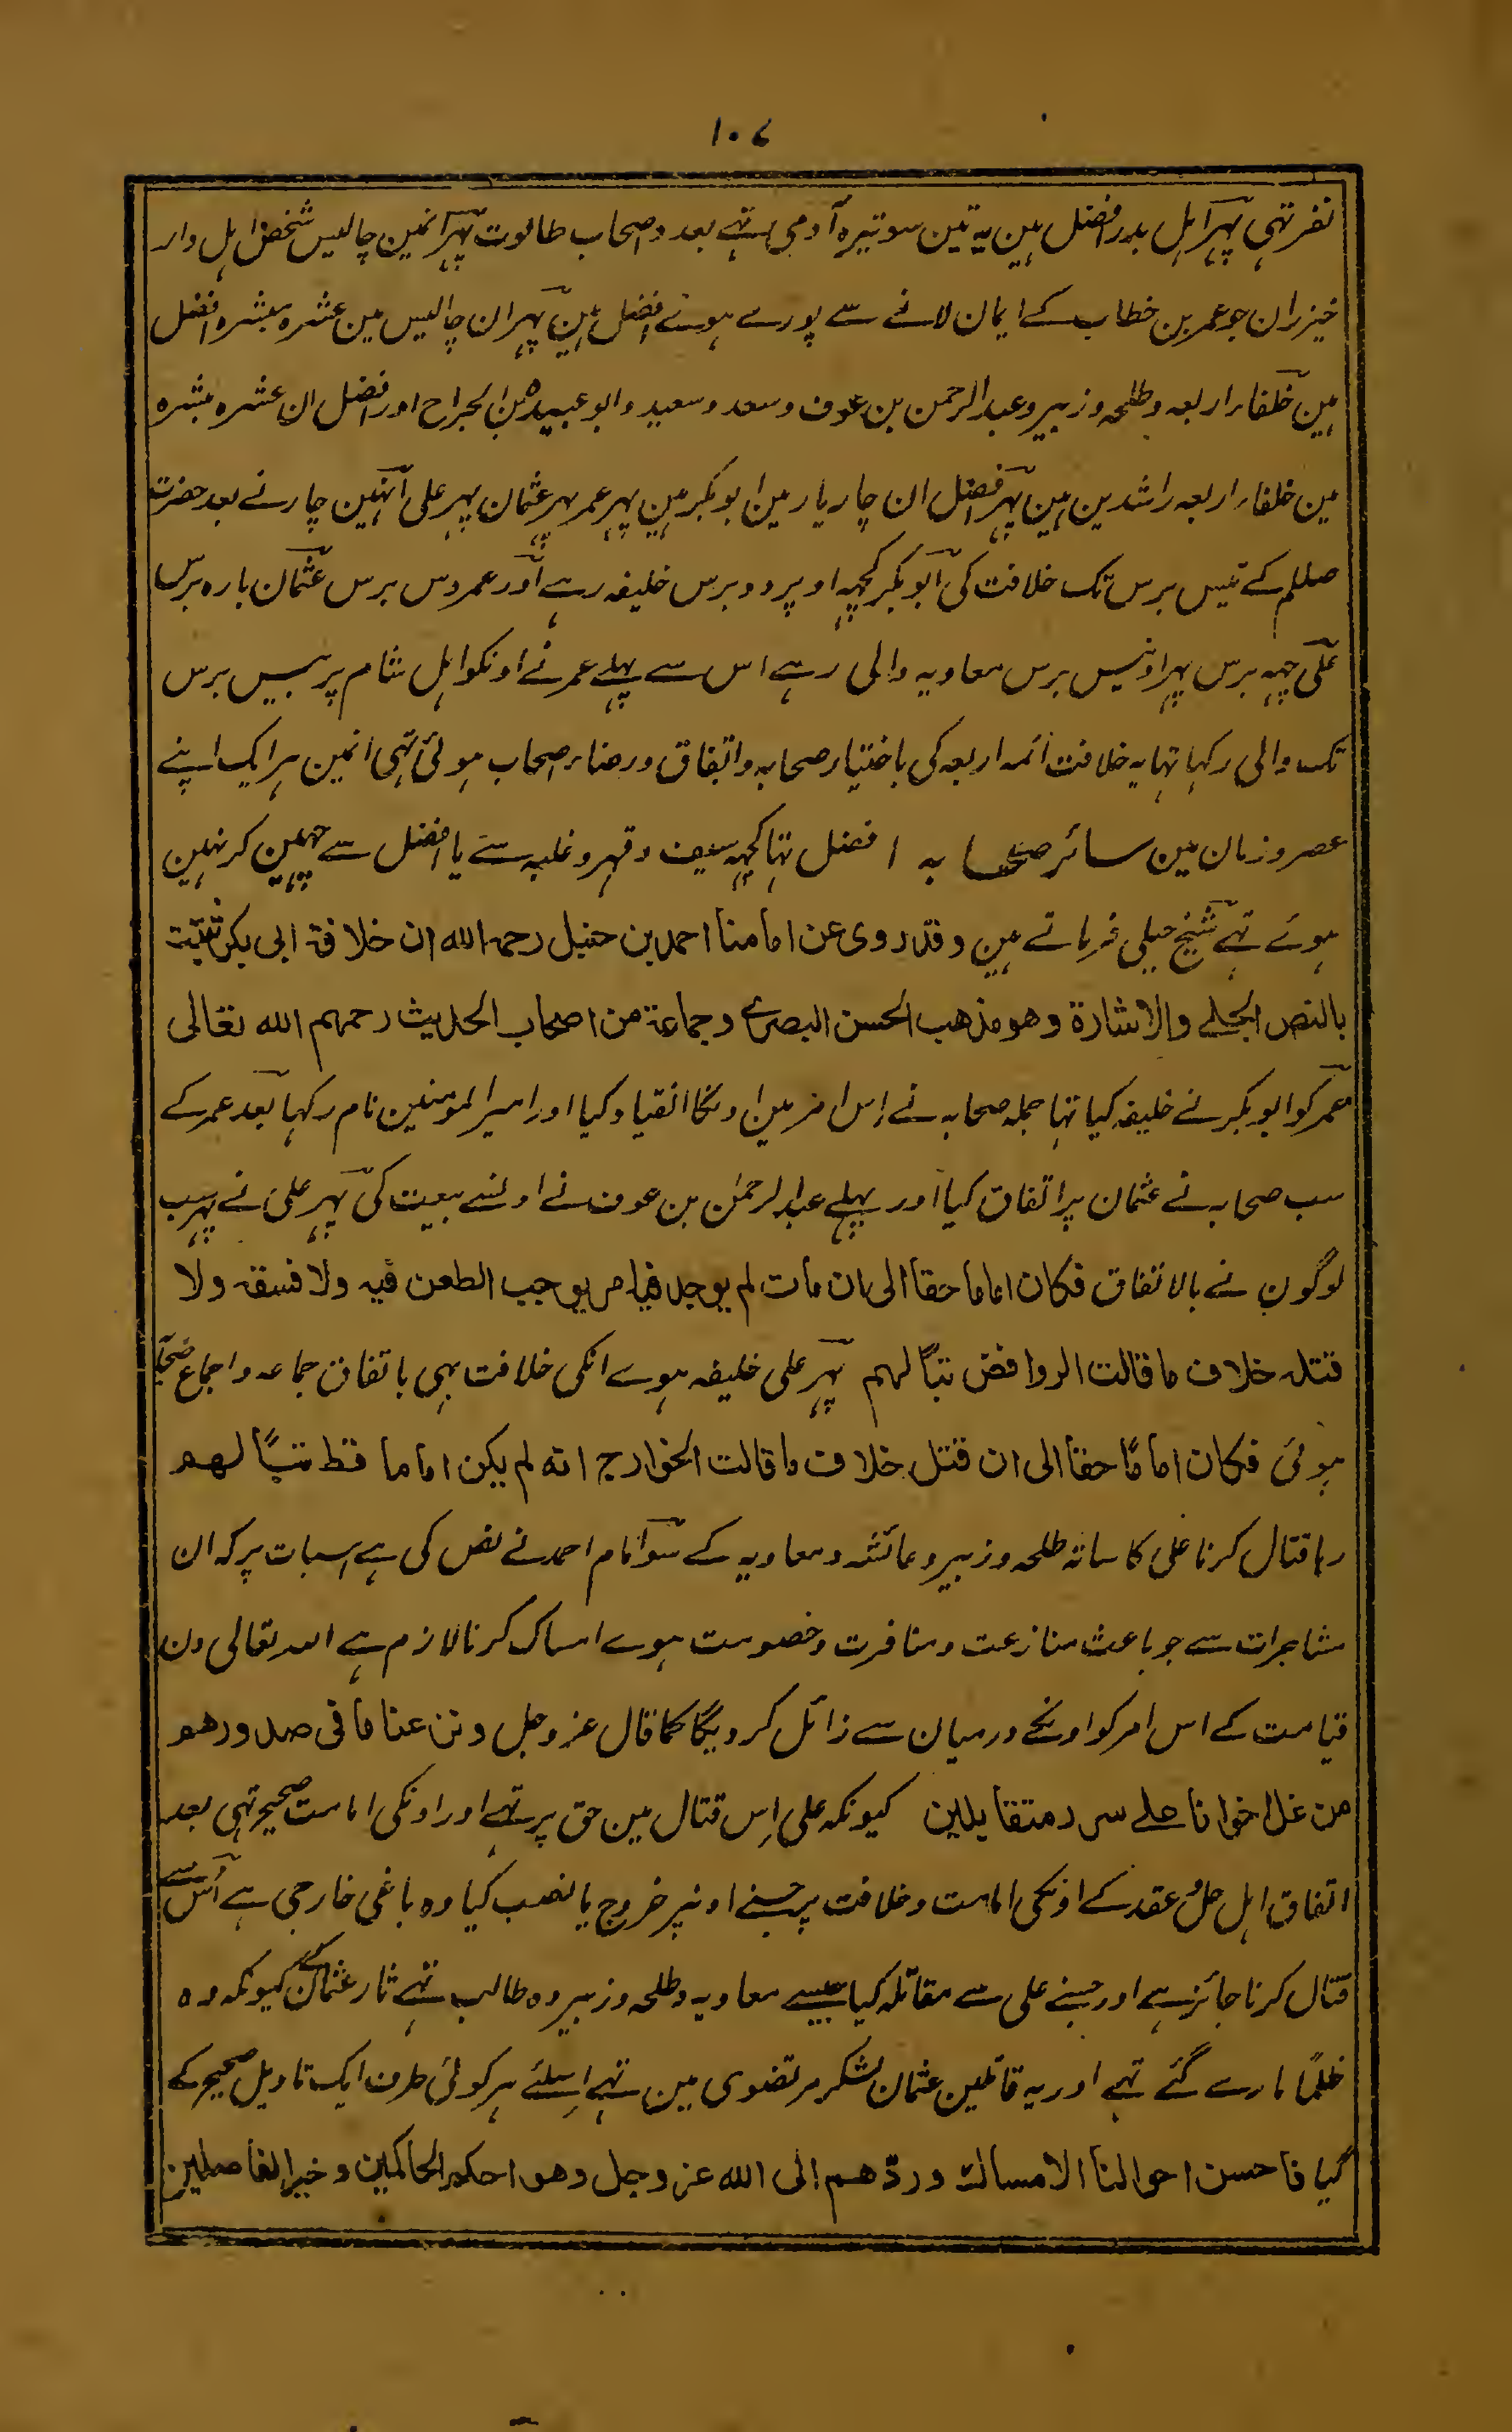 ۱۰۷
نفر تہی پہر اہل بدر افضل ہین یہ تین سو تیرہ آدمی تہے بعدد اصحاب طالوت پہر انمین چالیس شخص اہل دار
خیزران جو عمر بن خطاب کے ایمان لانے سے پورے ہوئے افضل ہین پہر ان چالیس مین عشرہ مبشرہ افضل
ہین خلفاء اربعہ و طلحہ و زبیر و عبد الرحمن بن عوف و سعد و سعید و ابو عبیدہ بن الجراح اور افضل ان عشرہ مبشرہ
مین خلفاء اربعہ راشدین ہین پہر افضل ان چار یار مین ابو بکر ہین پہر عمر پہر عثمان پہر علی انہین چار نے بعد حضرت
صللم کے تیس برس تک خلافت کی ابو بکر کچہہ اوپر دو برس خلیفہ رہے اور عمر دس برس عثمان بارہ برس
علی چہہ برس پہر اونیس برس معاویہ والی رہے اس سے پہلے عمر نے اونکو اہل شام پر بیس برس
تک والی رکہا تہا یہ خلافت ائمہ اربعہ کی باختیار صحابہ و اتفاق و رضاء اصحاب ہوئی تہی انمین ہر ایک اپنے
عصر و زمان مین سائر صحابہ افضل تہا کچہہ سیف و قہر و غلبہ سے یا افضل سے چہین کر نہین
ہوئے تہے شیخ جیلی فرماتے ہین وقد روی عن امامنا احمد بن حنبل رحمہ اللہ ان خلافۃ ابی بکر ثبتت
بالنص الجلے والاشارۃ وھو مذھب الحسن البصرے وجماعۃ من اصحاب الحدیث رحمہم اللہ تعالی
عمر کو ابو بکر نے خلیفہ کیا تہا جملہ صحابہ نے اِس امر مین اونکا انقیاد کیا اور امیر المومنین نام رکہا بعد عمر کے
سب صحابہ نے عثمان پر اتفاق کیا اور پہلے عبد الرحمن بن عوف نے اونسے بیعت کی پہر علی نے پہر سب
لوگون نے بالاتفاق فکان اماما حقا الی ان مات لم یوجد فیہ امر یوجب الطعن فیہ ولا فسقہ ولا
قتلہ خلاف ما قالت الروافض تبًا لہم پہر علی خلیفہ ہوے انکی خلافت بہی باتفاق جماعہ و اجماع صحابہ
ہوئی فکان امامًا حقا الی ان قتل خلاف ما قالت الخوارج انہ لم یکن اماما قط تبًا لھم
رہا قتال کرنا علی کا ساتہ طلحہ و زبیر و عائشہ و معاویہ کے سو امام احمد نے نص کی ہے اسبات پر کہ ان
مشاجرات سے جو باعث منازعت و منافرت و خصومت ہوے امساک کرنا لازم ہے اللہ تعالی دن
قیامت کے اس امر کو اونکے درمیان سے زائل کردیگا کما قال عز وجل ونزعنا ما فی صدورھم
من غل اخوانا علے سرر متقابلین کیونکہ علی اِس قتال مین حق پر تہے اور اونکی امامت صحیح تہی بعد
اتفاق اہل حل و عقد کے اونکی امامت و خلافت پر جسنے اونپر خروج یا نصب کیا وہ باغی خارجی ہے اُس سے
قتال کرنا جائز ہے اور جسنے علی سے مقاتلہ کیا جیسے معاویہ و طلحہ و زبیر وہ طالب تہے ثار عثمان کے کیونکہ وہ
ظلمًا مارے گئے تہے اور یہ قاتلین عثمان لشکر مرتضوی مین تہے اِسلئے ہر کوئی طرف ایک تاویل صحیح کے
گیا فاحسن احوالنا الامساک وردّھم الی اللہ عز وجل وھو احکم الحاکمین وخیر الفاصلین